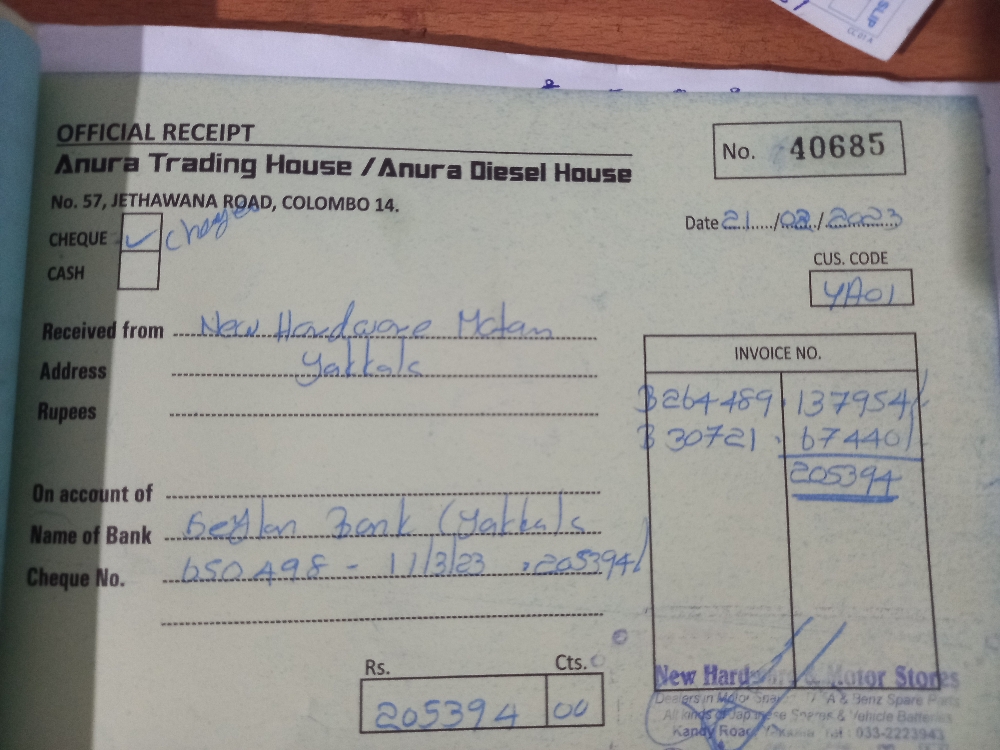 SLIP
OFFICIAL RECEIPT
Anura Trading House / Anura Diesel House
No. 57, JETHAWANA ROAD, COLOMBO 14.
No. 40685
CHEQUE ✓
CASH
Date 21/02/2023
CUS. CODE
YA01
Received from New Hardware
Address Yakkala
Rupees
INVOICE NO.
3264489 137954/
330721 67440/
205394
On account of
Name of Bank Seylan Bank (Yakkala
Cheque No. 650498 - 11/3/23 205394/
Rs. Cts.
205394 00
New Hardware & Motor Stores
Dealers in Motor Spare & Benz Spare Parts
All kinds of Japanese & Vehicle Batteries
Kandy Road, Yakkala Tel : 033-2223943